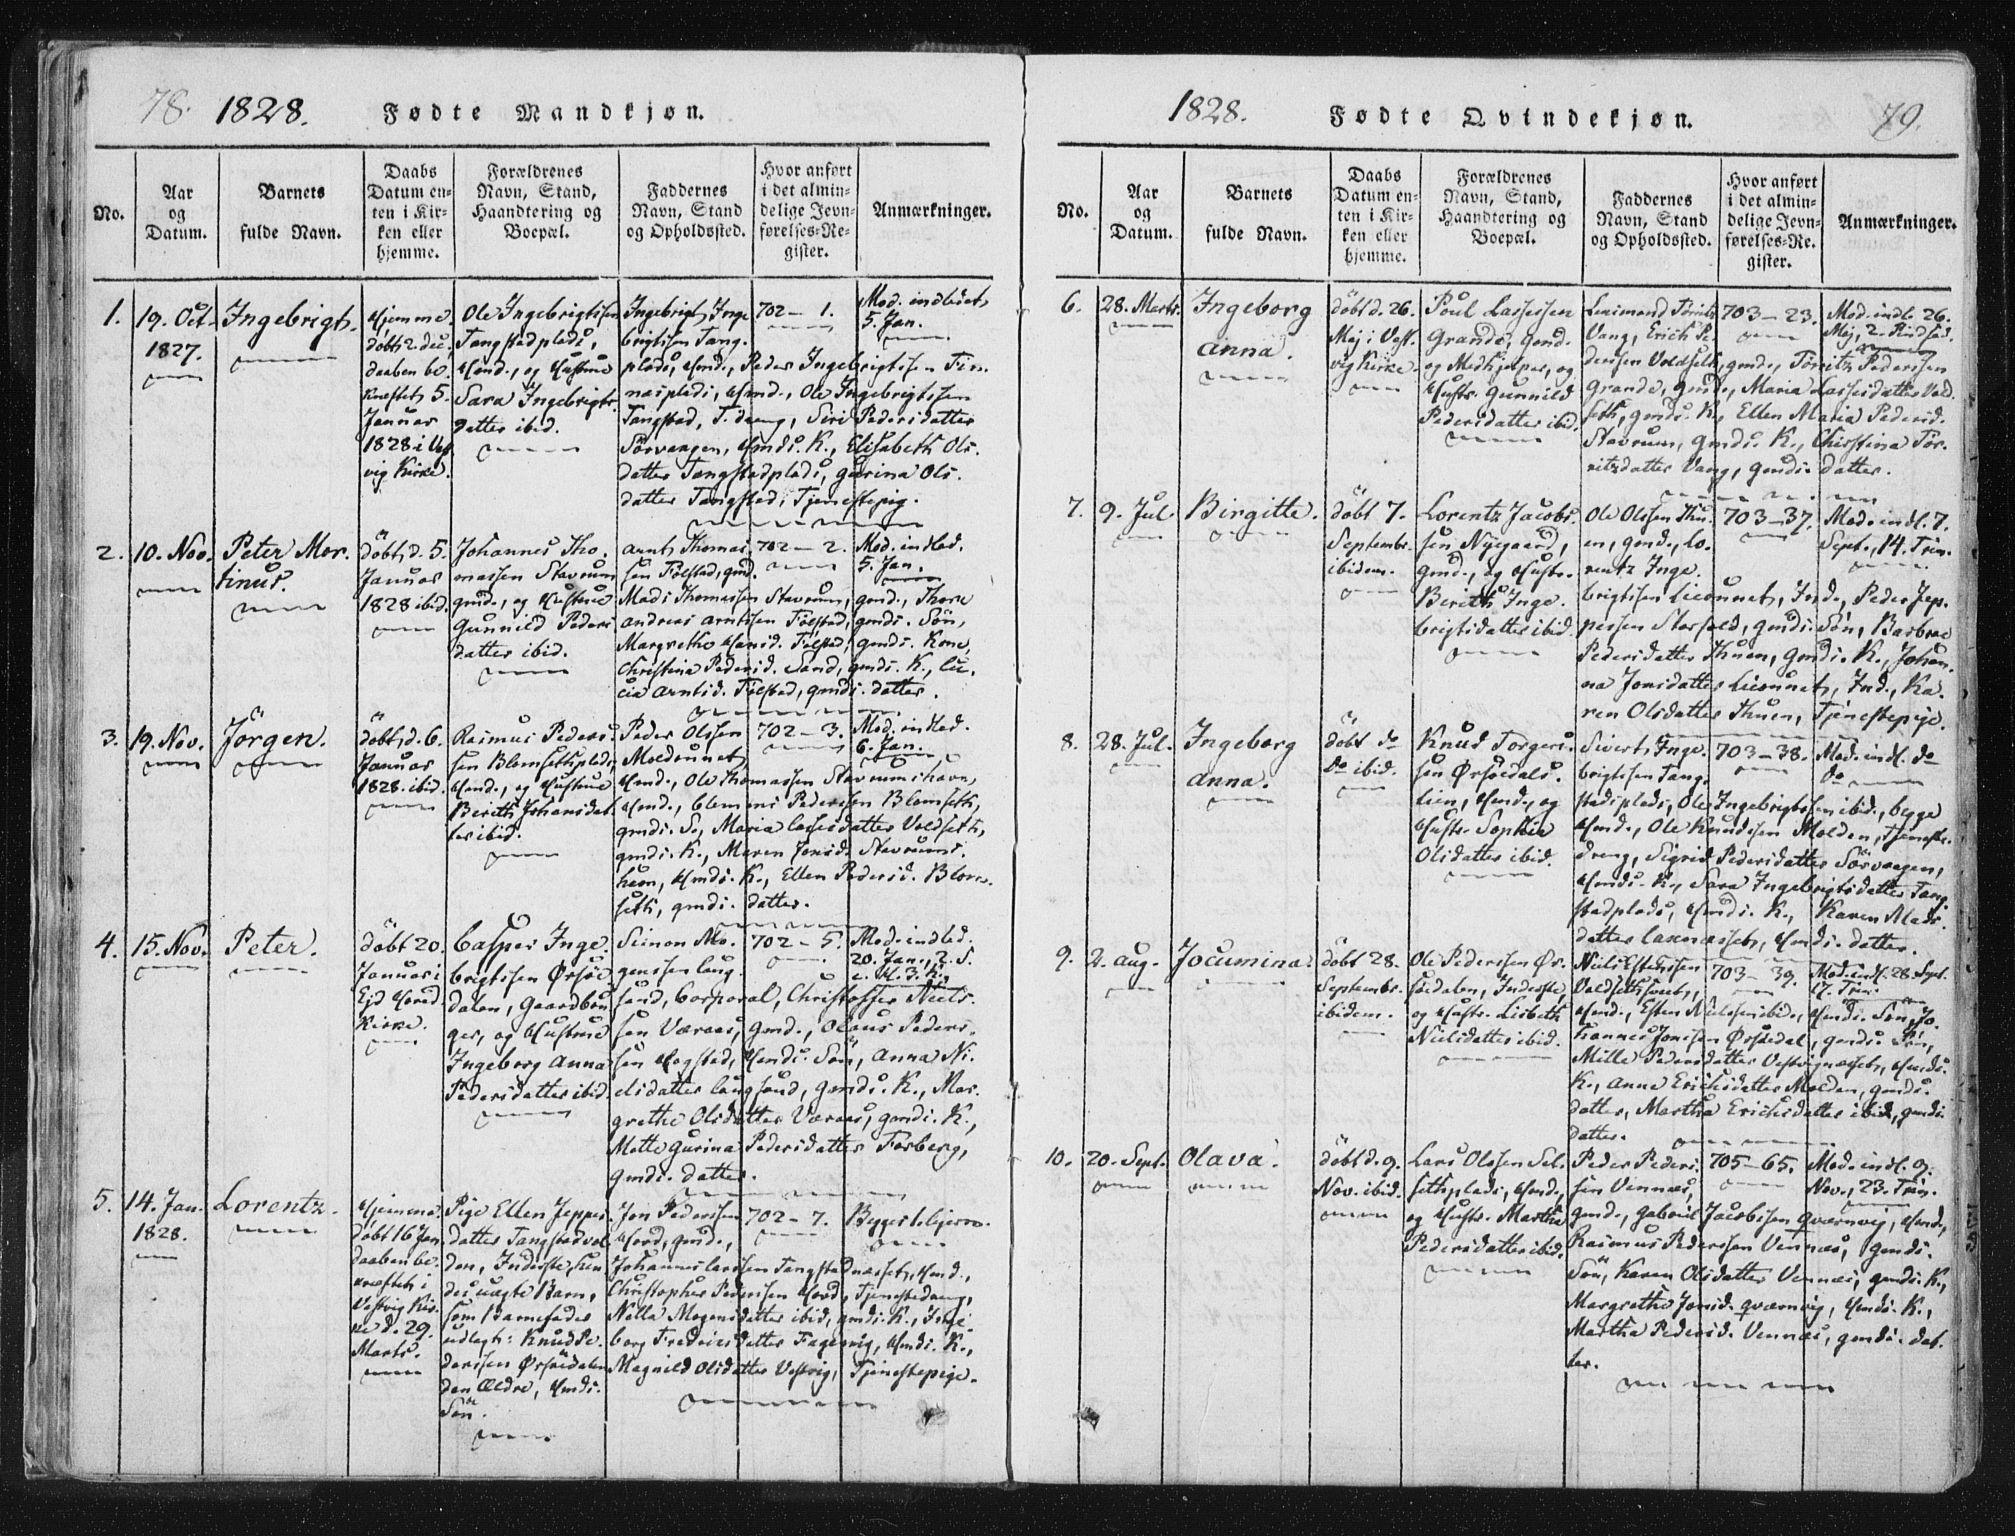 78. 1828. Fødte Mandkjøn.
No.
Aar
og
Datum.
Barnets
fulde Navn.
Daabs
Datum en-
ten i Kir-
ken eller
hjemme.
Forældrenes
Navn, Stand,
Haandtering og
Boepæl.
Faddernes
Navn, Stand
og Opholdssted.
Hvor anført
i det almin-
delige Jevn-
førelses-Re-
gister.
Anmærkninger.
1.
19. Oct.
1827.
Ingebrigt.
Hjemme-
döbt 2. Dec.,
daaben be-
kræftet 5.
Januar
1828 i
vig Kirke.
Ole Ingebrigtsen
Tangstadplads,
Hmd., og Hustrue
Sara Ingebrigts-
datter ibid.
Ingebrigt Inge
brigtsen Tang-
plads, Hmd., Peder Ingebrigtsen
Hmd., Ole Ingebrigtsen
Tangstad, T. dreng, Siri Pedersdatter
Sörvaagen, Hmds. K., Elisabeth Ols-
datter Tangstadplads, Gurina Ols-
datter Tangstad, Tjenestepig.
702 - 1.
Mod. indledet
5. Jan.
2.
10. Nov.
Peter Mor-
tinus.
döbt d. 5.
Januar
1828 ibid.
Johannes Tho-
massen Stavrum
gmd., og Hustrue
Gunnild Peders
datter ibid.
Arnt Thomas-
sen Fölstad, gmd.
Mads Thomassen Stavrum, gmd., Thore
Andreas Arntsen Fölstad, gmds. Sön,
Margrethe Hansd. Fölstad, gmds. Kone,
Christina Pedersd. Sand, gmds. K., Lu-
cia Arntsd. Fölstad, gmds. datter.
702 - 2.
Mod. indled.
5. Jan.
3.
19. Nov.
Jörgen.
döbt d. 6.
Januar
1828. ibid.
Rasmus Peders-
sen Blomsethplads,
Hmd., og Hustrue
Berith Johansdat-
ter ibid.
Peder Olssen
Moldunnet,
Hmd., Ole Thomassen Stavrumshavn,
Hmd., Clemmet Pedersen Blomseth,
gmds. S., Maria Lassesdatter Voldseth,
gmds. K., Maren Jonsd. Stavrums-
havn, Hmds. K., Ellen Pedersd. Blom-
seth, gmds. datter.
702 - 3.
Mod. indled.
6. Jan.
4.
15. Nov.
Peter.
döbt 20.
Januar i
Kirke.
Casper Inge-
brigtsen Örsöe
dalen, Gaardbru
ger, og Hustrue
Ingeborg Anna
Pedersdatter ibid.
Simon Mo-
genssen Laug-
sand, Corporal, Christoffer Niels-
sen Væraas, gmd., Olaus Peders-
sen Hogstad, Hmds. Sön, Anna Ni-
elsdatter Laugsand, gmds. K., Mar-
grethe Olsdatter Væraas, gmds. K.,
Mette Gurina Pedersdatter Forberg,
gmds. datter.
702 - 5.
Mod. indled.
20. Jan., 2. S.
e. H. 3. K.
5.
14. Jan.
1828.
Lorentz.
Hjemme-
döbt 16 Jan.
daaben be-
kræftet i
Vestvig Kir-
ke d. 29.
Marts.
Pige Ellen Jeppes
datter Tangstadvol
den, Inderste, hen
des uægte Barn,
som Barnefader
udlagt: Knud Pe-
derssen Örsöedalen
den Ældre, Hmds.
Sön.
Jon Pederssen
Hord, gmd.,
Johannes Larssen Tangstadnæsset, Hmd.,
Christopher Pederssen Hord, Tjenestedreng,
Nella Mogensdatter ibid, gmds. K., Inge-
borg Fredricsdatter Fagervig, Hmds. K.,
Magnild Olsdatter Vestvig, Tjenestepige.
702 - 7.
Begges
1828. Fødte Qvindekjøn. 79.
No.
Aar
og
Datum.
Barnets
fulde Navn.
Daabs
Datum en-
ten i Kir-
ken eller
hjemme.
Forældrenes
Navn, Stand,
Haandtering og
Boepæl.
Faddernes
Navn, Stand
og Opholdssted.
Hvor anført
i det almin-
delige Jevn-
førelses-Re-
gister.
Anmærkninger.
6.
28. Marts.
Ingeborg
Anna.
döbt d. 26.
Maj i Vest-
vig Kirke.
Poul Lassessen
Grande, gmd.
og Medhjelper, og
Hustr. Gunnild
Pedersdatter ibid.
Vang, Erich Pe-
derssen Voldseth, gmd., Törritz Pederssen
Grande, gmd., Maria Lassesdatter Vold-
seth, gmds. K., Ellen Maria Pedersd.
Stavrum, gmds. K., Christina Tör-
ritzdatter Vang, gmds. datter.
703 - 23.
Mod. indl. 26.
Maj, 2. Pindsed.
7.
9. Jul.
Birgitte.
döbt 7.
Septembr.
ibidem.
Lorentz Jacobs-
sen Nyegaard,
gmd., og Hustr.
Berith Inge-
brigtsdatter ibid.
Ole Olssen Thu-
en, gmd., Lo-
rentz Inge-
brigtsen Lieunnet, Ind., Peder Jep-
pessen Storfold, gmds. Sön, Barbroe
Pedersdatter Thuen, gmds. K., Johan-
na Jonsdatter Lieunnet, Ind., Ka-
ren Olsdatter Thuen, Tjenestepige.
703 - 37.
Mod. indl. 7.
Sept., 14. Trin.
8.
28. Jul.
Ingeborg
Anna.
döbt do
do ibid.
Knud Torgers-
sen Örsöedals-
lien, Hmd., og
Hustr. Sophia
Olsdatter ibid.
Sivert Inge-
brigtsen Tang-
stadplads, Ole Ingebrigtsen ibid., begge
Hmd., Ole Knudssen Molden, Tjeneste-
dreng, Sigrid Pedersdatter Sörvaagen,
Hmds. K., Sara Ingebrigtsdatter Tang-
stadplads, Hmds. K., Karen Mads-
datter Laxnesset, Hmds. datter.
703 - 38.
Mod. indl. do
do
9.
2. Aug.
Jocumina.
döbt 28.
Septembr.
ibidem.
Ole Pederssen Ör-
söedalen, Inderste,
og Hustr. Lisbeth
Nielsdatter ibid.
Niels Estenssen
Hmd., Esten Nielssen ibid., Hmds. Sön, Jo-
hannes Jonssen Örsöedal, gmds. Sön,
Mille Pedersdatter Vestvignæsset, Hmds.
K., Anna Erichsdatter Molden, gmds.
datter, Martha Erichsdatter ibid., gmds.
datter.
703 - 39.
Mod. indl. 28. Sept.
17. Trin.
10.
20. Sept.
Olava.
döbt d. 9.
Nov. ibid.
Lars Olssen Sel-
sethplads, Hmd.,
og Hustr. Martha
Pedersdatter ibid.
Peder Peders-
sen Vennæs,
gmd., Gabriel Jacobssen Qværnvig, Hmd.,
Rasmus Pederssen Vennæs, gmds.
Sön, Karen Olsdatter Vennæs, gmds. K.,
Margrethe Jonsd. Qværnvig, Hmds. K.,
Martha Pedersd. Vennæs, gmds. dat-
ter.
705 - 65.
Mod. indl. 9.
Nov., 23. Trin.